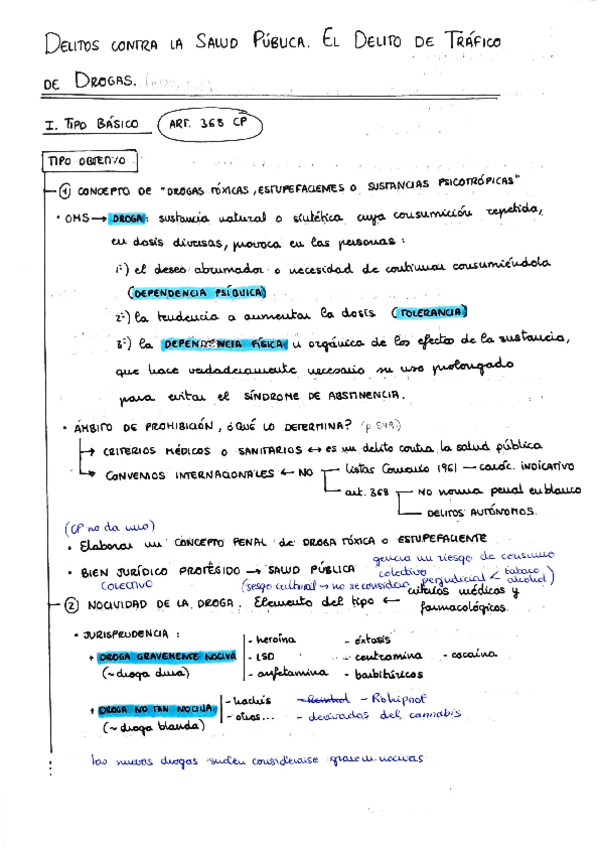 DELITOS CONTRA LA SALUD PÚBLICA. EL DELITO DE TRÁFICO
DE DROGAS.
I. TIPO BÁSICO ART. 368 CP
TIPO OBJETIVO
① CONCEPTO DE "DROGAS TÓXICAS, ESTUPEFACIENTES O SUSTANCIAS PSICOTRÓPICAS"
· OMS → DROGA: sustancia natural o sintética cuya consumición repetida,
en dosis diversas, provoca en las personas:
1º) el deseo abrumador o necesidad de continuar consumiéndola
(DEPENDENCIA PSÍQUICA)
2º) la tendencia a aumentar la dosis (TOLERANCIA)
3º) la DEPENDENCIA FÍSICA u orgánica de los efectos de la sustancia,
que hace verdaderamente necesario su uso prolongado
para evitar el SÍNDROME DE ABSTINENCIA.
· ÁMBITO DE PROHIBICIÓN, ¿QUÉ LO DETERMINA? (p 549)
→ CRITERIOS MÉDICOS O SANITARIOS ↔ es un delito contra la salud pública
→ CONVENIOS INTERNACIONALES ← NO listas Convenio 1961 — caráct. INDICATIVO
art. 368 NO norma penal en blanco
DELITOS AUTÓNOMOS.
(CP no da uno)
· Elaborar un CONCEPTO PENAL de DROGA TÓXICA O ESTUPEFACIENTE
· BIEN JURÍDICO PROTEGIDO → SALUD PÚBLICA genera un riesgo de consumo
COLECTIVO colectivo
(sesgo cultural → no se considera perjudicial < tabaco alcohol)
② NOCIVIDAD DE LA DROGA. Elemento del tipo ← criterios médicos y
farmacológicos.
· JURISPRUDENCIA:
+ DROGA GRAVEMENTE NOCIVA
(~ droga dura)
- heroína - éxtasis
- LSD - centramina - cocaína
- anfetamina - barbitúricos
+ DROGA NO TAN NOCIVA
(~ droga blanda)
- hachís - Rohipnol
- otros... - derivados del cannabis
las nuevas drogas suelen considerarse gravem. nocivas